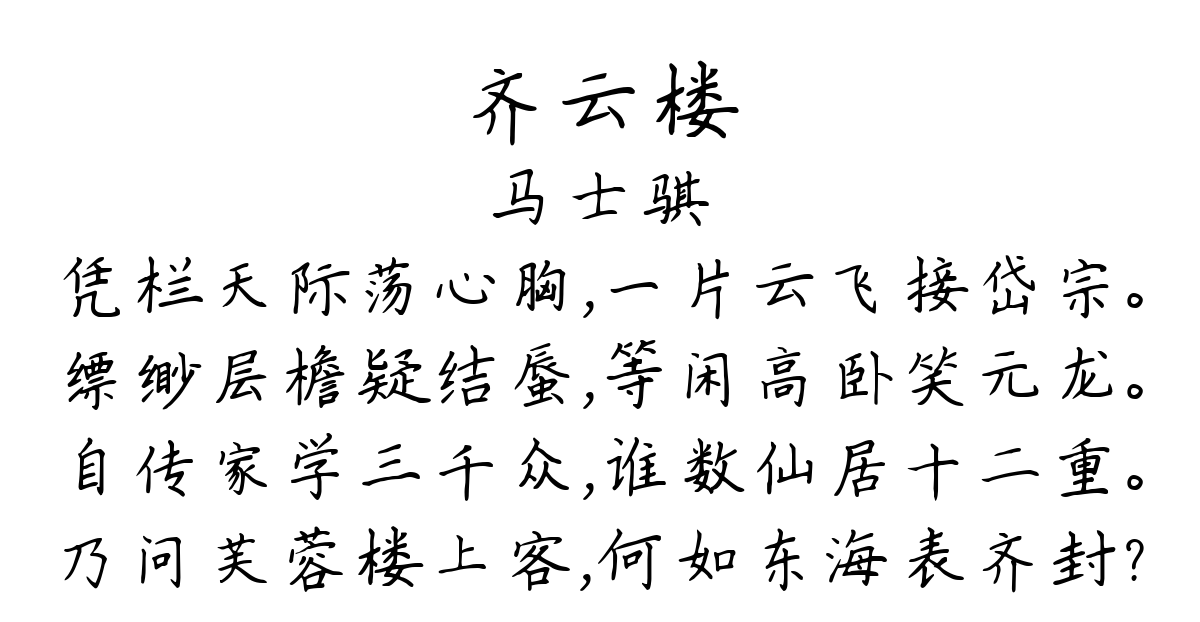 齐云楼
马士骐
凭栏天际荡心胸,一片云飞接岱宗。
缥缈层檐疑结蜃,等闲高卧笑元龙。
自传家学三千众,谁数仙居十二重。
乃问芙蓉楼上客,何如东海表齐封?